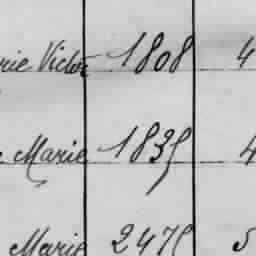 rie Victor 1808 4
Marie 1835 4
Marie 2475 5